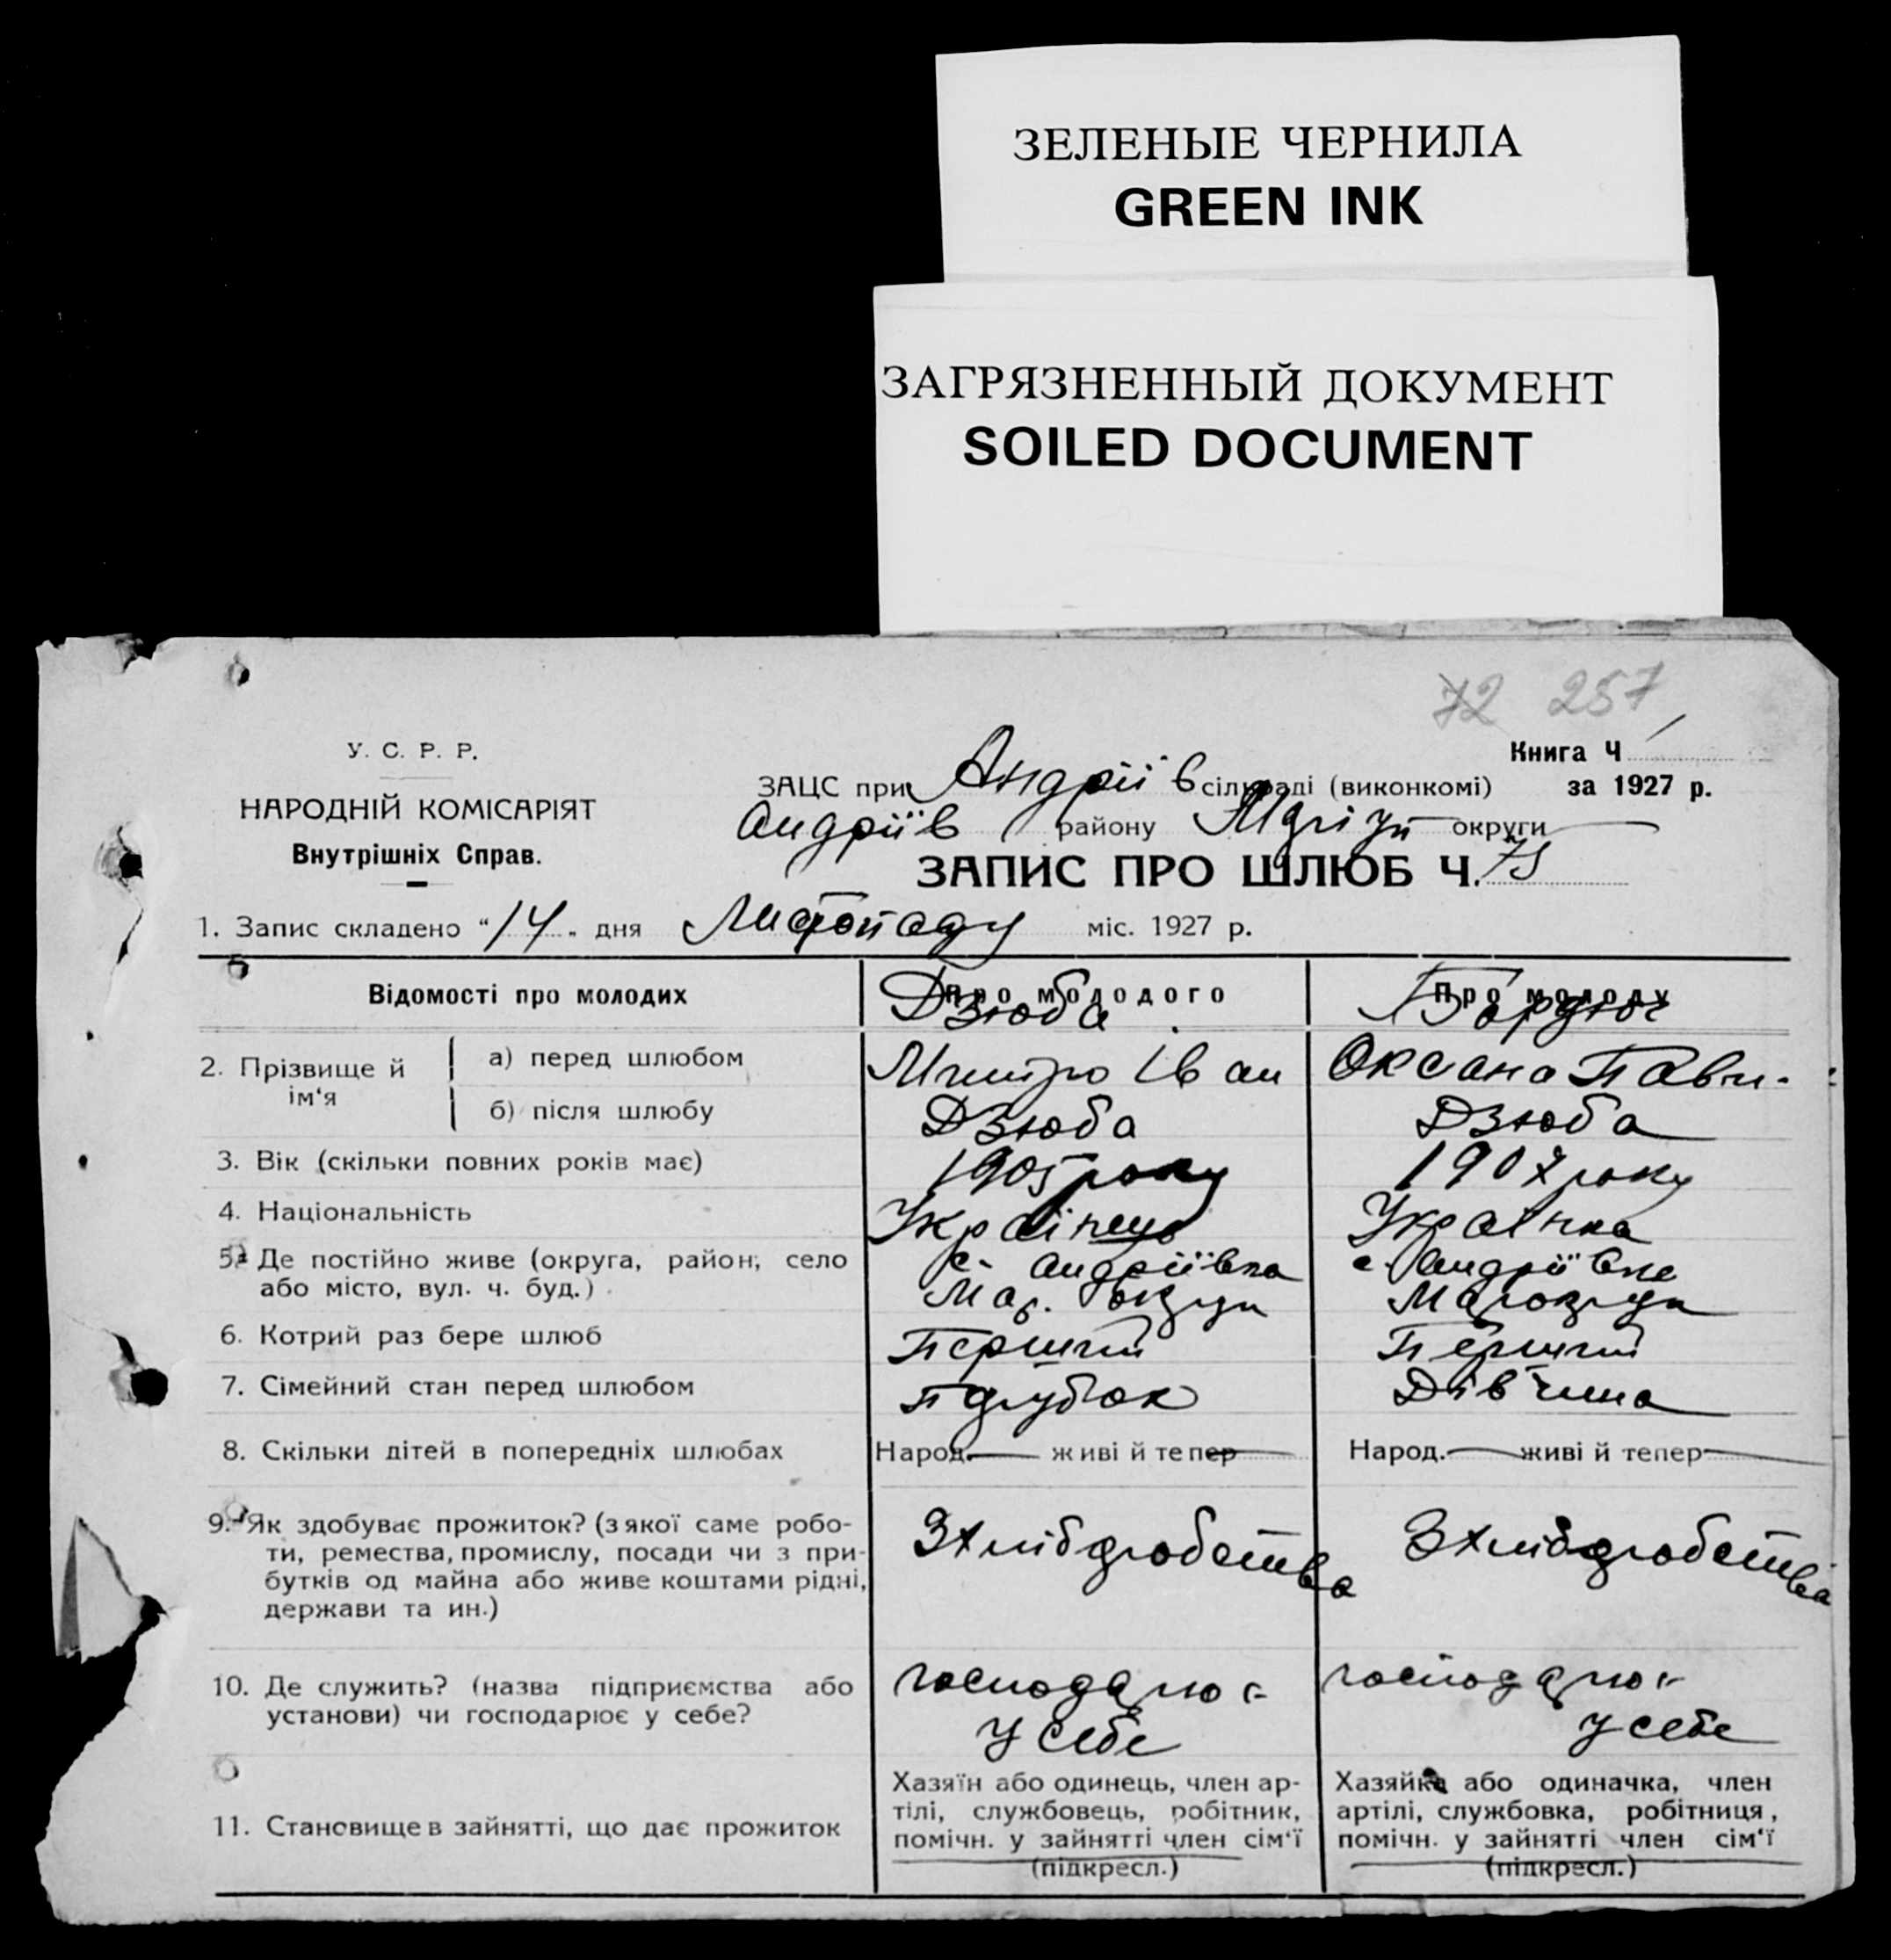 ЗЕЛЕНЫЕ ЧЕРНИЛА
GREEN INK
ЗАГРЯЗНЕННЫЙ ДОКУМЕНТ
SOILED DOCUMENT
72 257
У. С. Р. Р.
НАРОДНІЙ КОМІСАРІЯТ
Внутрішніх Справ.
Книга Ч
ЗАЦС при Андріїв сільраді (виконкомі) за 1927 р.
Андріїв району округи
ЗАПИС ПРО ШЛЮБ Ч. 75
1. Запис складено "14" дня Листопаду міс. 1927 р.
Відомості про молодих
Про молодого
Дзюба
Про молоду
2. Прізвище й ім'я
а) перед шлюбом
Дмитро Іван
Оксана Павл.
б) після шлюбу
Дзюба
Дзюба
3. Вік (скільки повних років має)
1905 року
1907 року
4. Національність
Українець
Українка
5. Де постійно живе (округа, район, село
або місто, вул. ч. буд.)
с. Андріївка
Мар. округи
с. Андріївка
Мар округи
6. Котрий раз бере шлюб
Перший
Перший
7. Сімейний стан перед шлюбом
парубок
Дівчина
8. Скільки дітей в попередніх шлюбах
Народ. — живі й тепер —
Народ. — живі й тепер —
9. Як здобуває прожиток? (з якої саме робо-
ти, ремества, промислу, посади чи з при-
бутків од майна або живе коштами рідні,
держави та ин.)
З хліборобства
З хліборобства
10. Де служить? (назва підприємства або
установи) чи господарює у себе?
господарює
у себе
господарює
у себе
11. Становище в зайнятті, що дає прожиток
Хазяїн або одинець, член ар-
тілі, службовець, робітник,
помічн. у зайнятті член сім'ї
(підкресл.)
Хазяйка або одиначка, член
артілі, службовка, робітниця,
помічн. у зайнятті член сім'ї
(підкресл.)